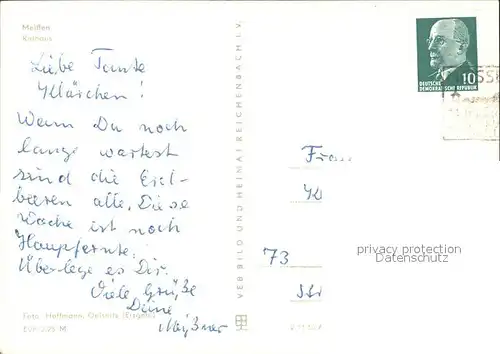 Meißen
Rathaus
Liebe Tante
Klärchen!
Wenn Du noch
lange wartest
sind die Erd-
beeren alle. Diese
Woche ist noch
Haupternte.
Überlege es Dir.
Viele Grüße
Deine
Meißner
Foto: Hoffmann, Oelsnitz (Erzgeb.)
EVP 0,25 M
VEB BILD UND HEIMAT REICHENBACH I. V.
10
DEUTSCHE
DEMOKRATISCHE REPUBLIK
Frau
Kl
73
privacy protection
Datenschutz